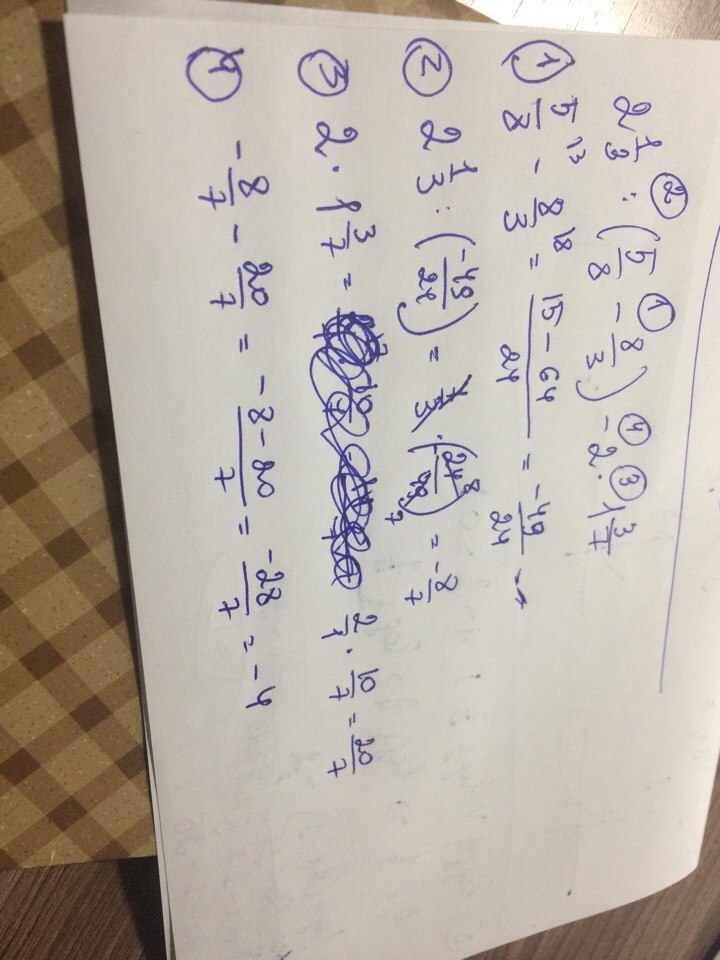 2 1/3 : (5/8 - 8/3) - 2 · 1 3/7
② ① ④ ③
① 5/8 - 8/3 = 15-64/24 = -49/24
② 2 1/3 : (-49/24) = 7/3 · (24/-49) = -8/7
③ 2 · 1 3/7 = 2/1 · 10/7 = 20/7
④ -8/7 - 20/7 = -8-20/7 = -28/7 = -4